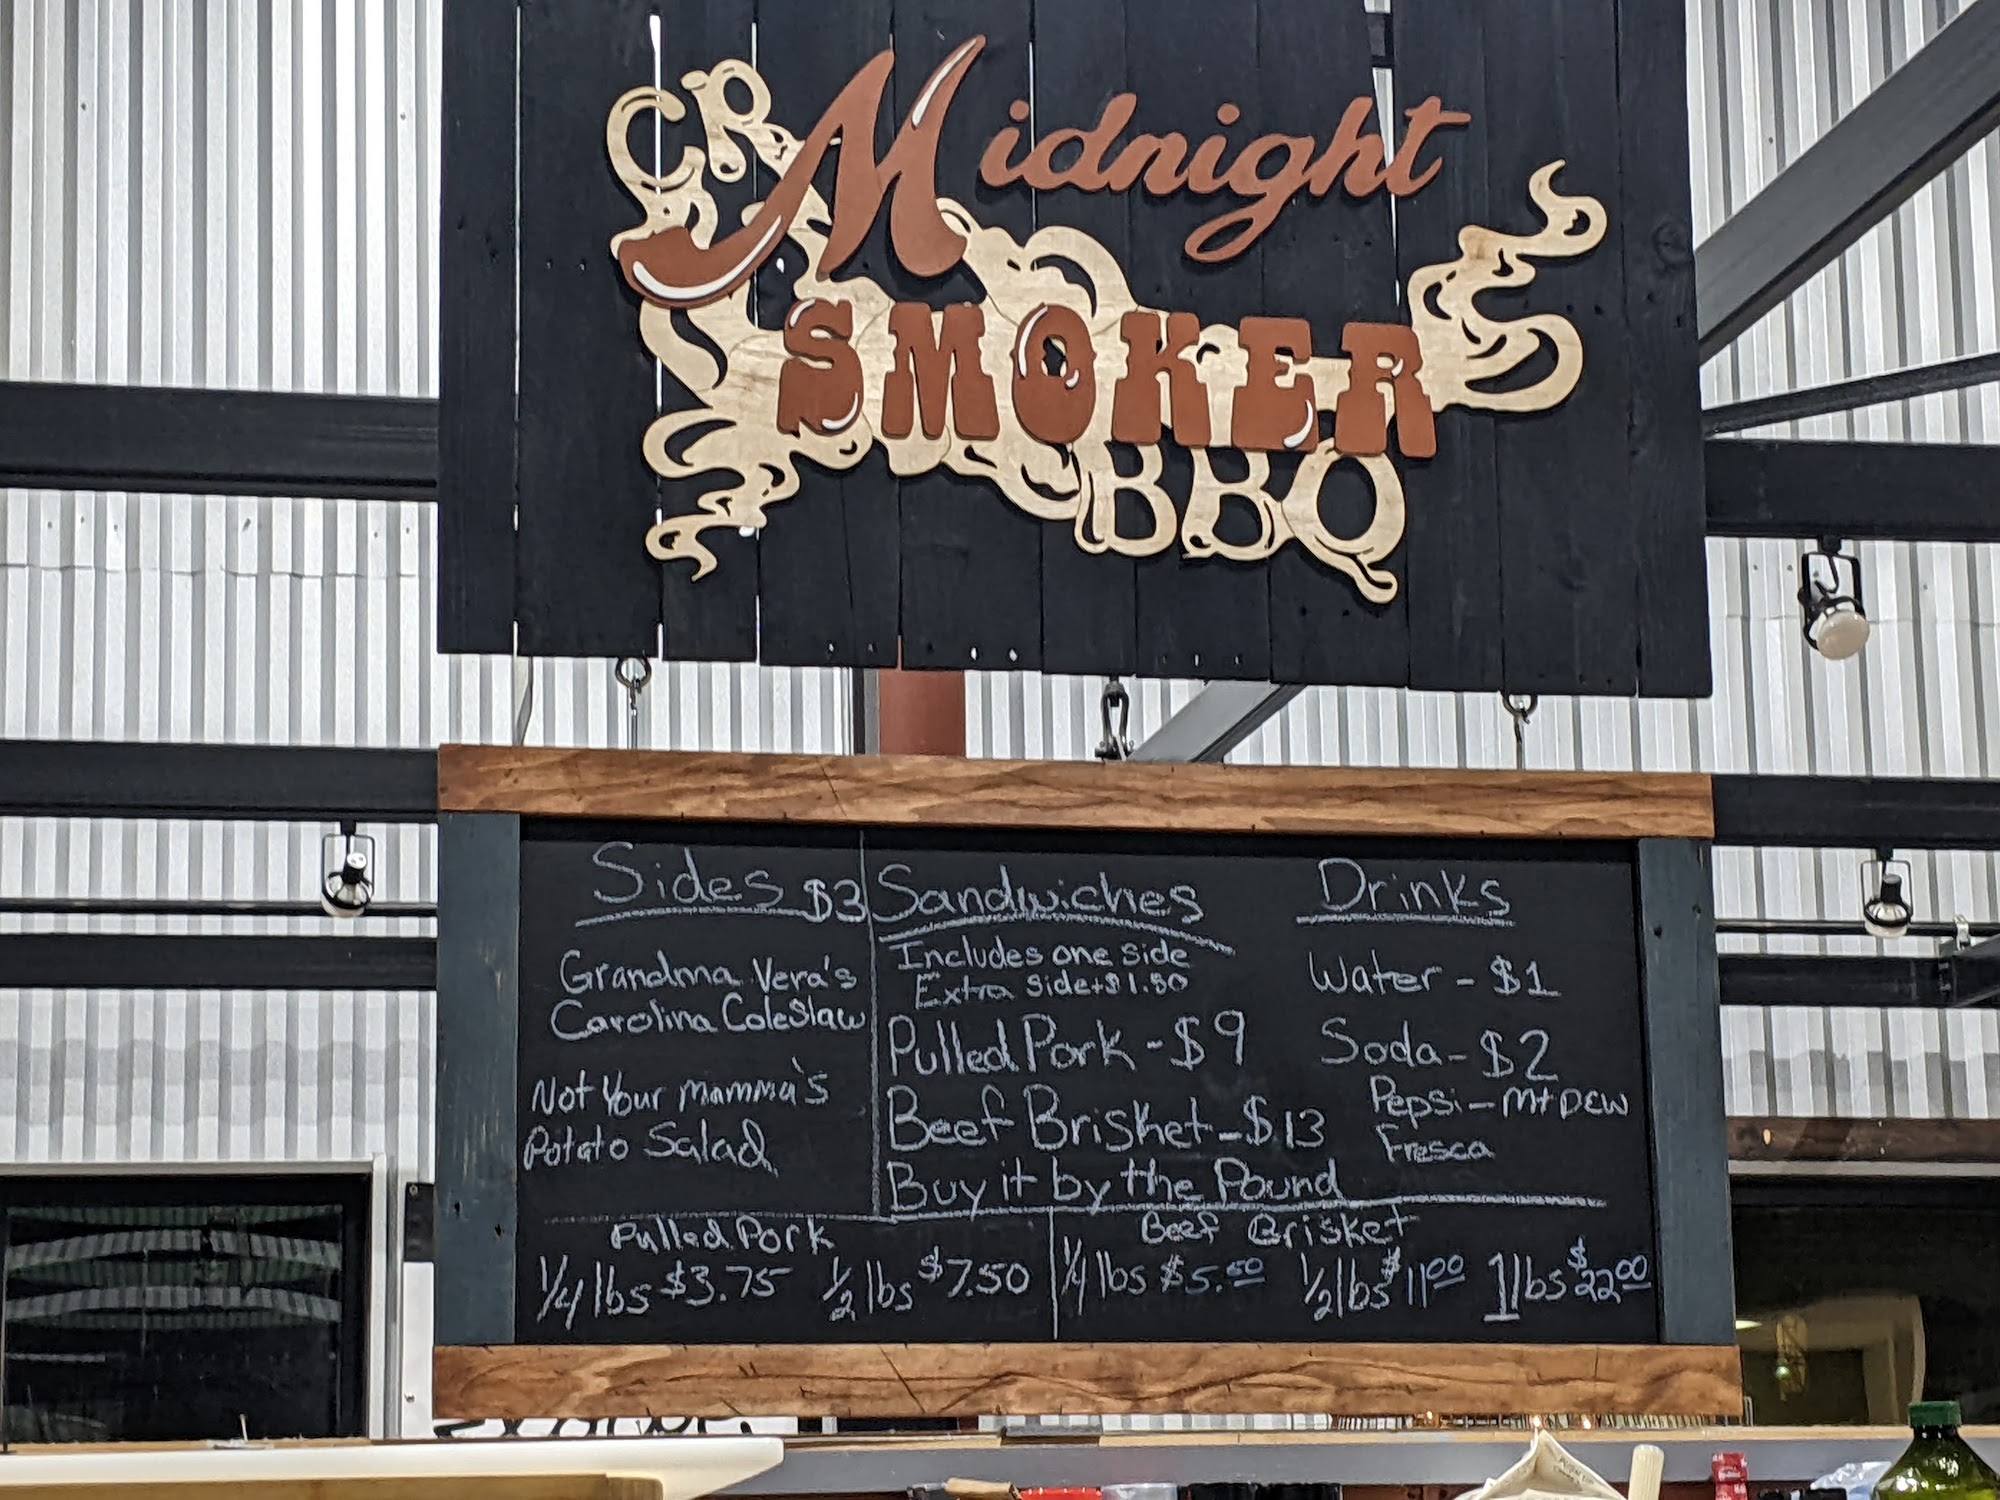 CR Midnight
SMOKER
BBQ
Sides $3
Grandma Vera's
Carolina ColeSlaw
Not Your Mamma's
Potato Salad
Sandwiches
Includes one side
Extra side + $1.50
Pulled Pork - $9
Beef Brisket - $13
Buy it by the Pound
Drinks
Water - $1
Soda - $2
Pepsi - Mt Dew
Fresca
Pulled Pork
1/4 lbs $3.75 1/2 lbs $7.50
Beef Brisket
1/4 lbs $5.50 1/2 lbs $11.00 1 lbs $22.00